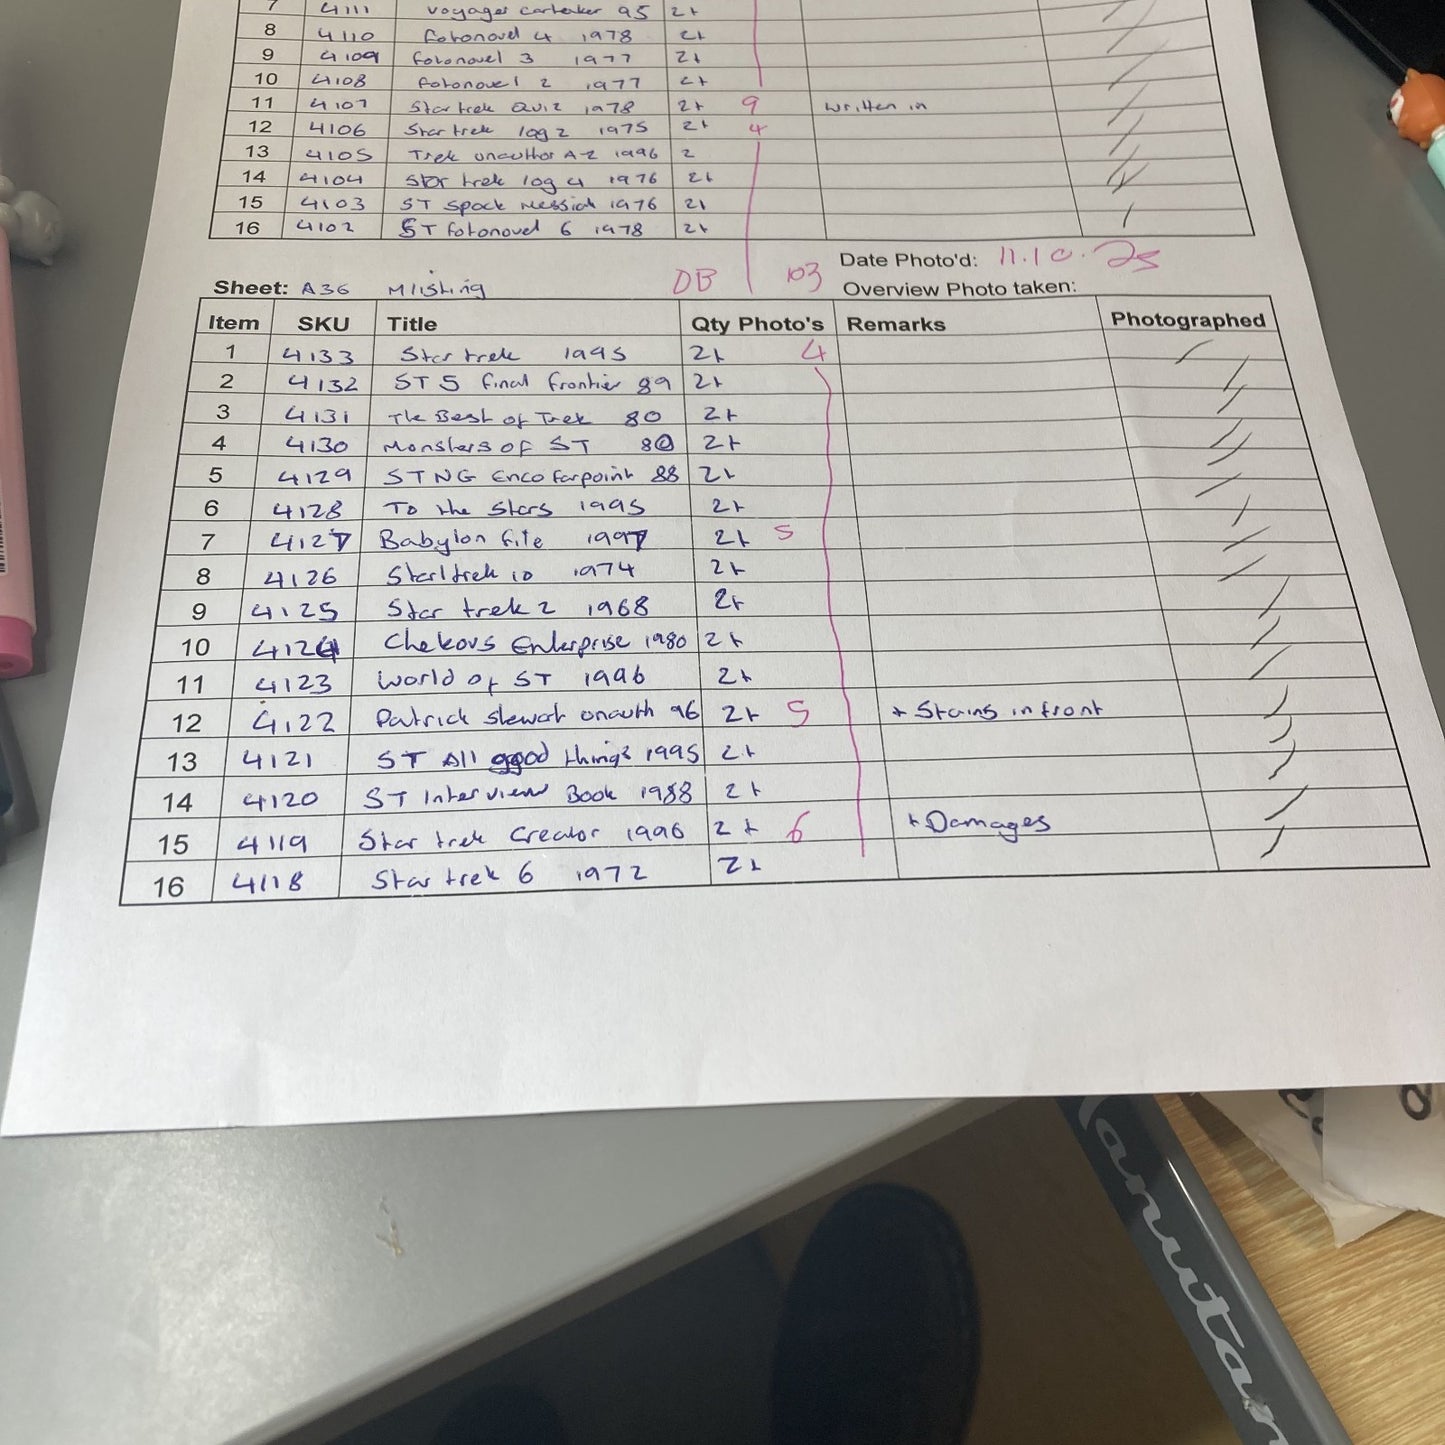 7 4111 Voyager cartaker 95 2+
8 4110 fotonovel 4 1978 2+
9 4109 fotonovel 3 1977 2+
10 4108 fotonovel 2 1977 2+
11 4107 Star trek Quiz 1978 2+ 9 written in
12 4106 Star trek log 2 1975 2+ 4
13 4105 Trek unauthor A-Z 1996 2
14 4104 Star trek log 4 1976 2+
15 4103 ST Spock Messiah 1976 2+
16 4102 ST fotonovel 6 1978 2+
Date Photo'd: 11.10.25
Sheet: A36 Mlisting DB 103 Overview Photo taken:
Item SKU Title Qty Photo's Remarks Photographed
1 4133 Star trek 1995 2+ 4
2 4132 ST 5 final frontier 89 2+
3 4131 The Best of Trek 80 2+
4 4130 Monsters of ST 80 2+
5 4129 STNG Enco farpoint 88 2+
6 4128 To the Stars 1995 2+
7 4127 Babylon file 1997 2+ 5
8 4126 Star trek 10 1974 2+
9 4125 Star trek 2 1968 2+
10 4124 Chekovs Enterprise 1980 2+
11 4123 World of ST 1996 2+
12 4122 Patrick stewart unauth 96 2+ 5 + Stains in front
13 4121 ST All good things 1995 2+
14 4120 ST Interview Book 1988 2+
15 4119 Star trek Creator 1996 2+ 6 + Damages
16 4118 Star trek 6 1972 2+
Manutan